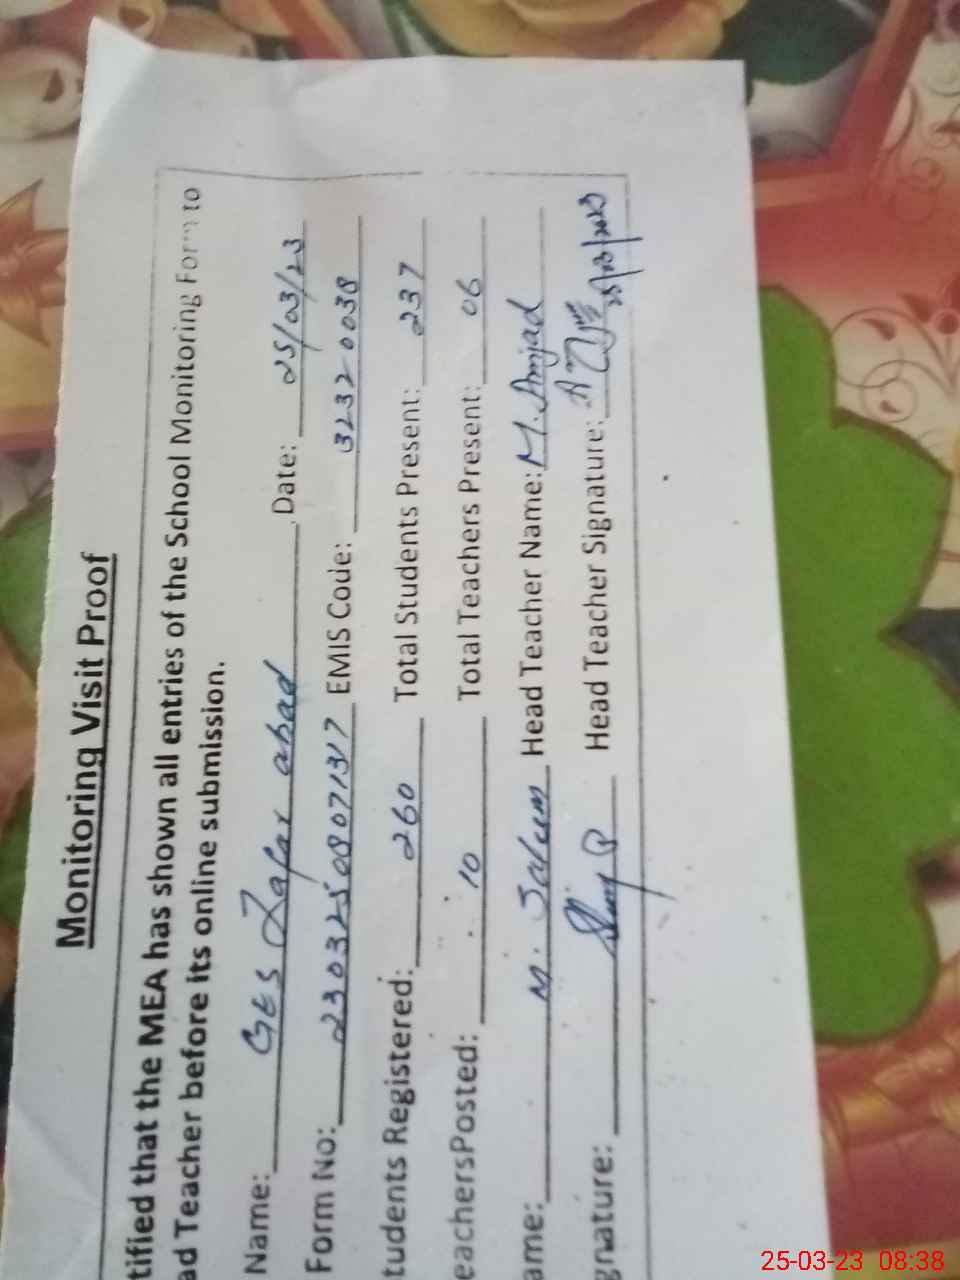 Monitoring Visit Proof
tified that the MEA has shown all entries of the School Monitoring Form to
ad Teacher before its online submission.
Name: GES Zafar abad Date: 25/03/23
Form No: 230325080071317 EMIS Code: 32320038
tudents Registered: 260 Total Students Present: 237
eachersPosted: 10 Total Teachers Present: 06
ame: M. Saleem Head Teacher Name: M. Amjad
gnature: Head Teacher Signature: 25/03/2023
25-03-23 08:38